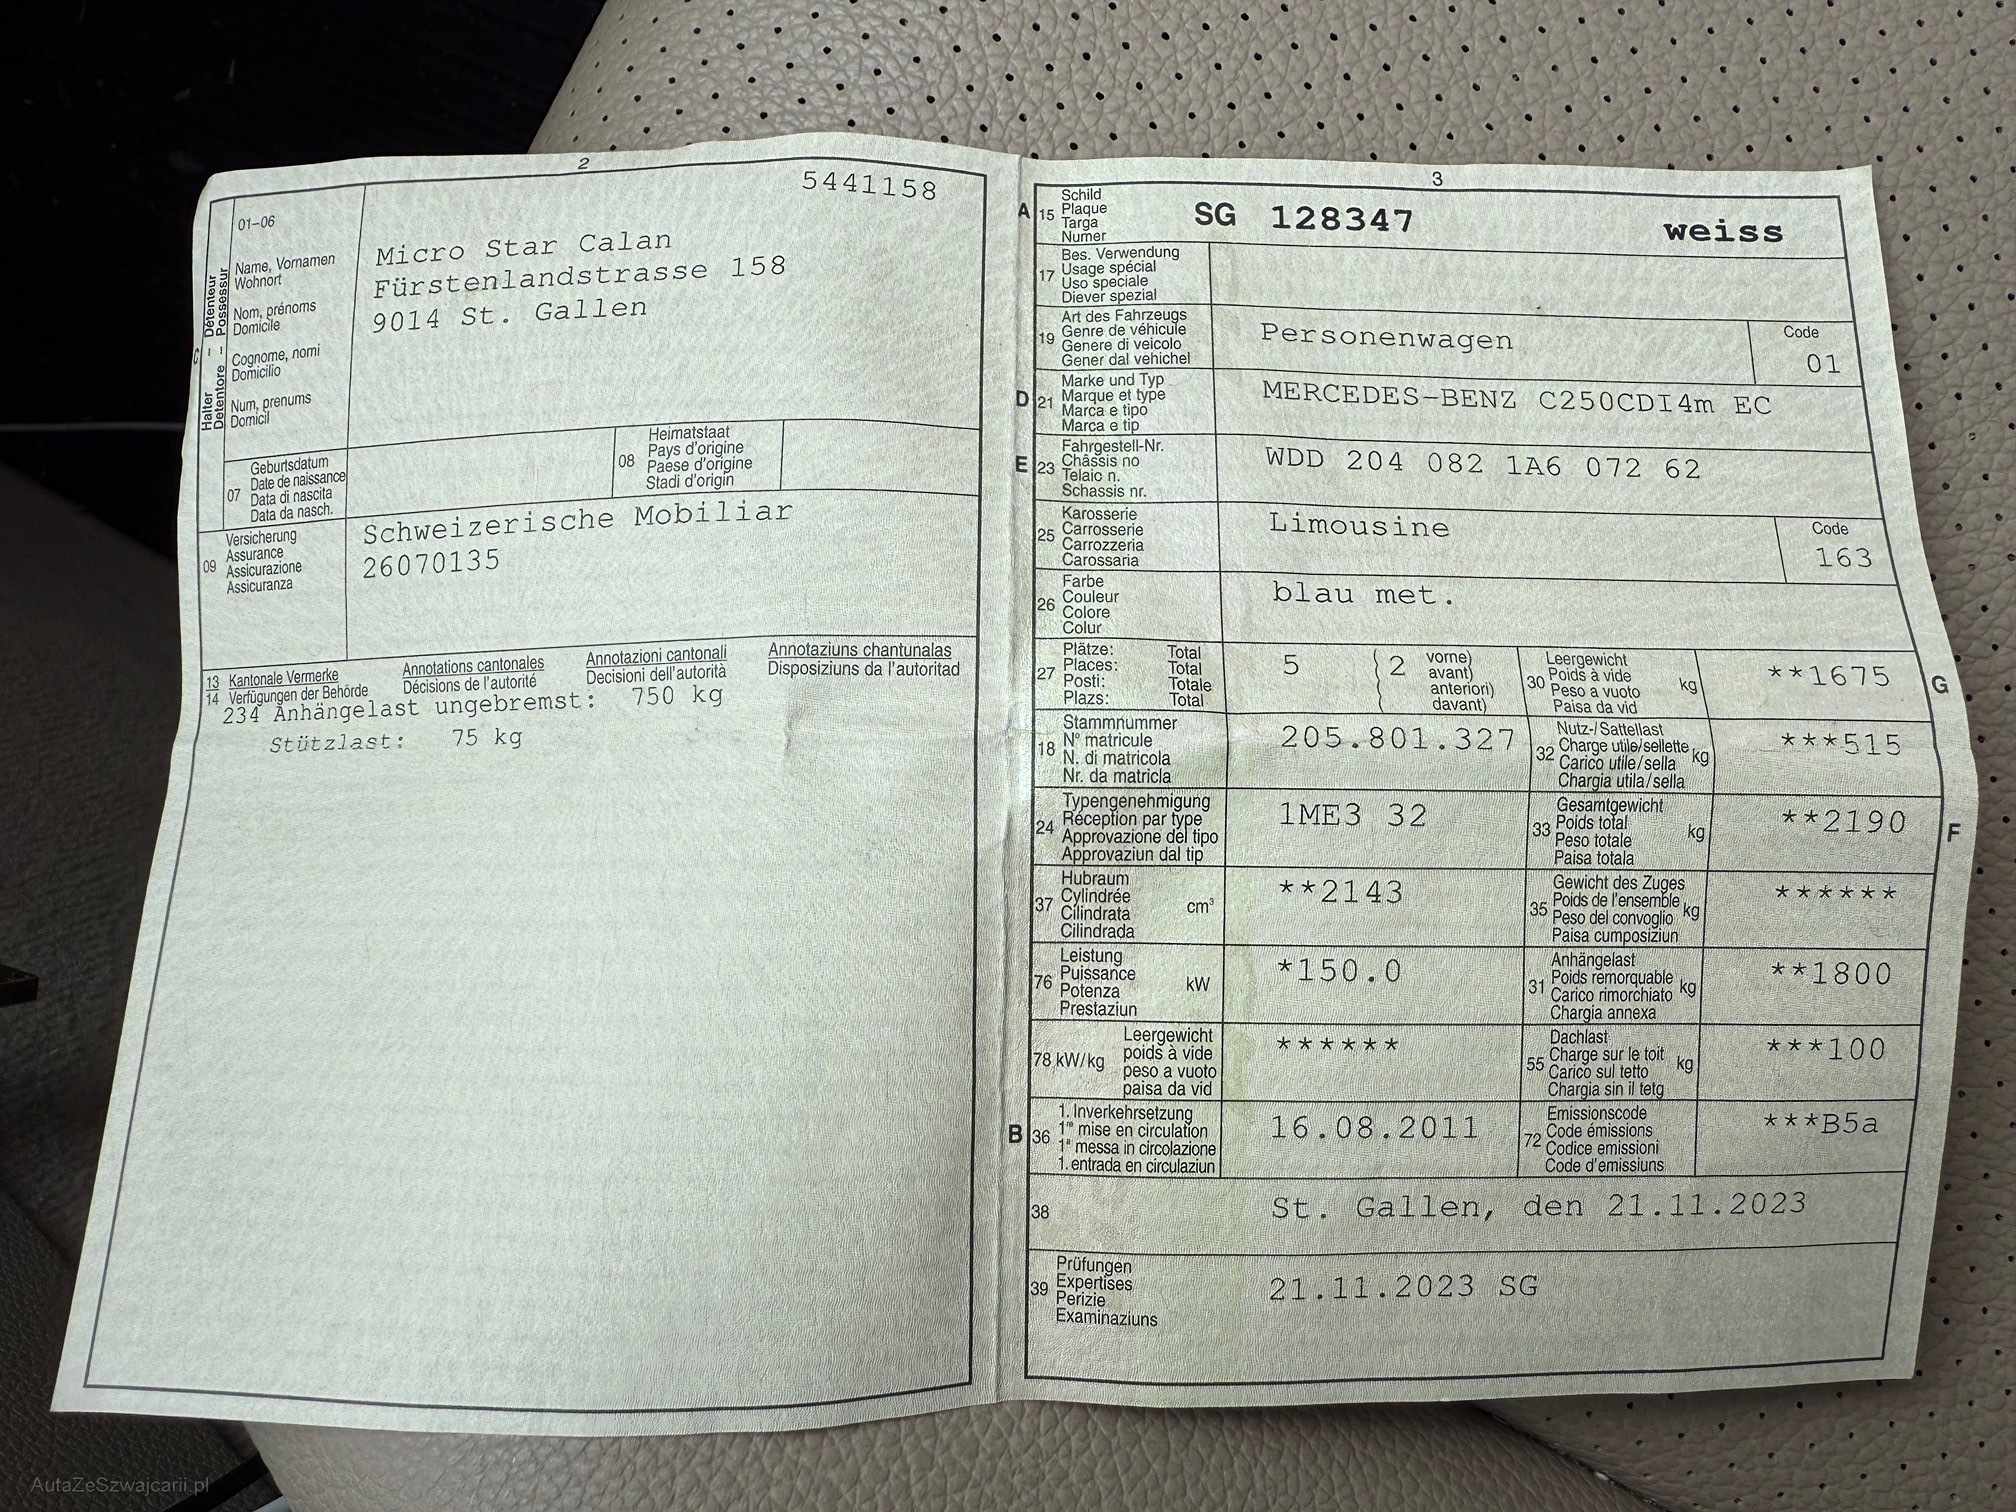 2
5441158
01-06
Halter – Détenteur
Detentore – Possessur
C
Name, Vornamen
Wohnort
Nom, prénoms
Domicile
Cognome, nomi
Domicilio
Num, prenums
Domicil
Micro Star Calan
Fürstenlandstrasse 158
9014 St. Gallen
07
Geburtsdatum
Date de naissance
Data di nascita
Data da nasch.
08
Heimatstaat
Pays d'origine
Paese d'origine
Stadi d'origin
09
Versicherung
Assurance
Assicurazione
Assicuranza
Schweizerische Mobiliar
26070135
13
14
Kantonale Vermerke
Verfügungen der Behörde
Annotations cantonales
Décisions de l'autorité
Annotazioni cantonali
Decisioni dell'autorità
Annotaziuns chantunalas
Disposiziuns da l'autoritad
234 Anhängelast ungebremst: 750 kg
Stützlast: 75 kg
3
A
15
Schild
Plaque
Targa
Numer
SG 128347 weiss
17
Bes. Verwendung
Usage spécial
Uso speciale
Diever spezial
19
Art des Fahrzeugs
Genre de véhicule
Genere di veicolo
Gener dal vehichel
Personenwagen
Code
01
D
21
Marke und Typ
Marque et type
Marca e tipo
Marca e tip
MERCEDES-BENZ C250CDI4m EC
E
23
Fahrgestell-Nr.
Châssis no
Telaio n.
Schassis nr.
WDD 204 082 1A6 072 62
25
Karosserie
Carrosserie
Carrozzeria
Carossaria
Limousine
Code
163
26
Farbe
Couleur
Colore
Colur
blau met.
27
Plätze: Total
Places: Total
Posti: Totale
Plazs: Total
5
( 2
vorne)
avant)
anteriori)
davant)
30
Leergewicht
Poids à vide
Peso a vuoto
Paisa da vid
kg
**1675
G
18
Stammnummer
N° matricule
N. di matricola
Nr. da matricla
205.801.327
32
Nutz-/Sattellast
Charge utile/sellette
Carico utile/sella
Chargia utila/sella
kg
***515
24
Typengenehmigung
Réception par type
Approvazione del tipo
Approvaziun dal tip
1ME3 32
33
Gesamtgewicht
Poids total
Peso totale
Paisa totala
kg
**2190
F
37
Hubraum
Cylindrée
Cilindrata
Cilindrada
cm³
**2143
35
Gewicht des Zuges
Poids de l'ensemble
Peso del convoglio
Paisa cumposiziun
kg
******
76
Leistung
Puissance
Potenza
Prestaziun
kW
*150.0
31
Anhängelast
Poids remorquable
Carico rimorchiato
Chargia annexa
kg
**1800
78 kW/kg
Leergewicht
poids à vide
peso a vuoto
paisa da vid
******
55
Dachlast
Charge sur le toit
Carico sul tetto
Chargia sin il tetg
kg
***100
B
36
1. Inverkehrsetzung
1re mise en circulation
1a messa in circolazione
1. entrada en circulaziun
16.08.2011
72
Emissionscode
Code émissions
Codice emissioni
Code d'emissiuns
***B5a
38
St. Gallen, den 21.11.2023
39
Prüfungen
Expertises
Perizie
Examinaziuns
21.11.2023 SG
AutaZeSzwajcarii.pl